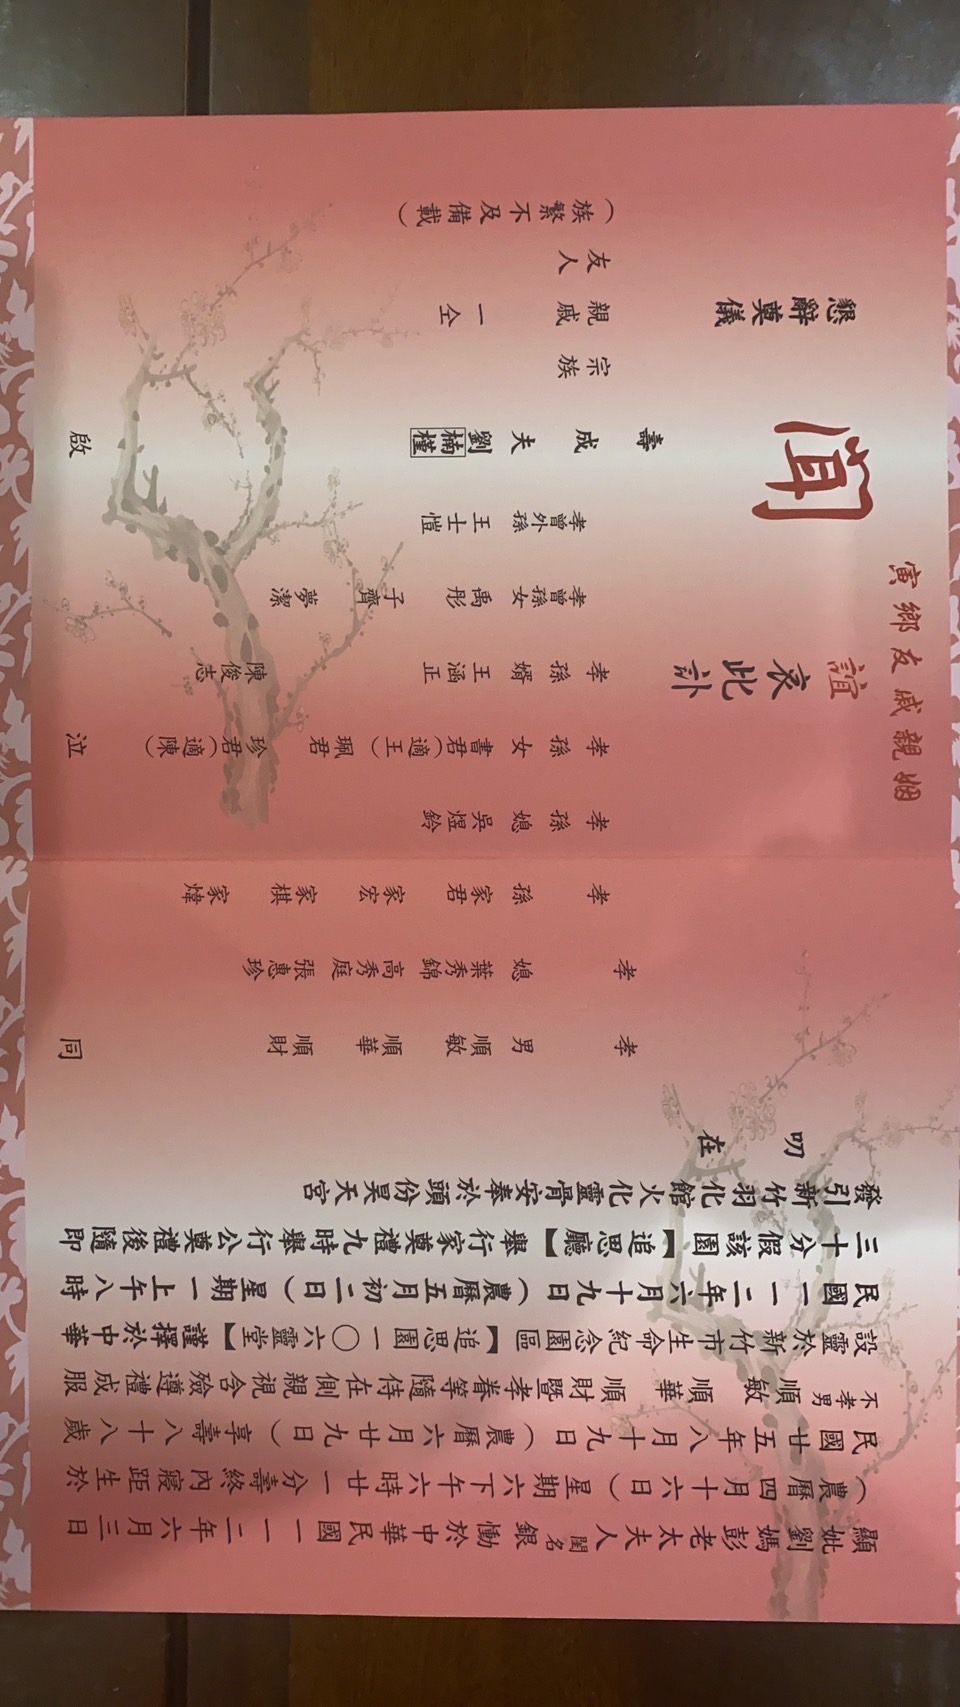 顯妣劉媽彭老太夫人閨名銀慟於中華民國一一二年六月三日
（農曆四月十六日）星期六下午六時廿一分壽終內寢距生於
民國廿五年八月十九日（農曆六月廿九日）享壽八十八歲
不孝男順敏順華順財暨孝眷等隨侍在側親視含殮遵禮成服
設靈於新竹市生命紀念園區【追思園一〇六靈堂】謹擇於中華
民國一一二年六月十九日（農曆五月初二日）星期一上午八時
三十分假該園【追思廳】舉行家奠禮九時舉行公奠禮後隨即
發引新竹羽化館火化靈骨安奉於頭份昊天宮
叨在
姻親戚友鄉寅
誼哀此訃
聞
懇辭奠儀
孝男順敏順華順財
孝媳葉秀錦高秀庭張惠珍
孝孫家君家宏家棋家煒
孝孫媳吳煜鈴
孝孫女書君（適王）珮君珍君（適陳）
孝孫婿王涵正陳俊志
孝曾孫女禹彤子齊夢潔
孝曾外孫王士愷
壽成夫劉楠槿
宗族
親戚一仝
友人
（族繁不及備載）
同泣啟